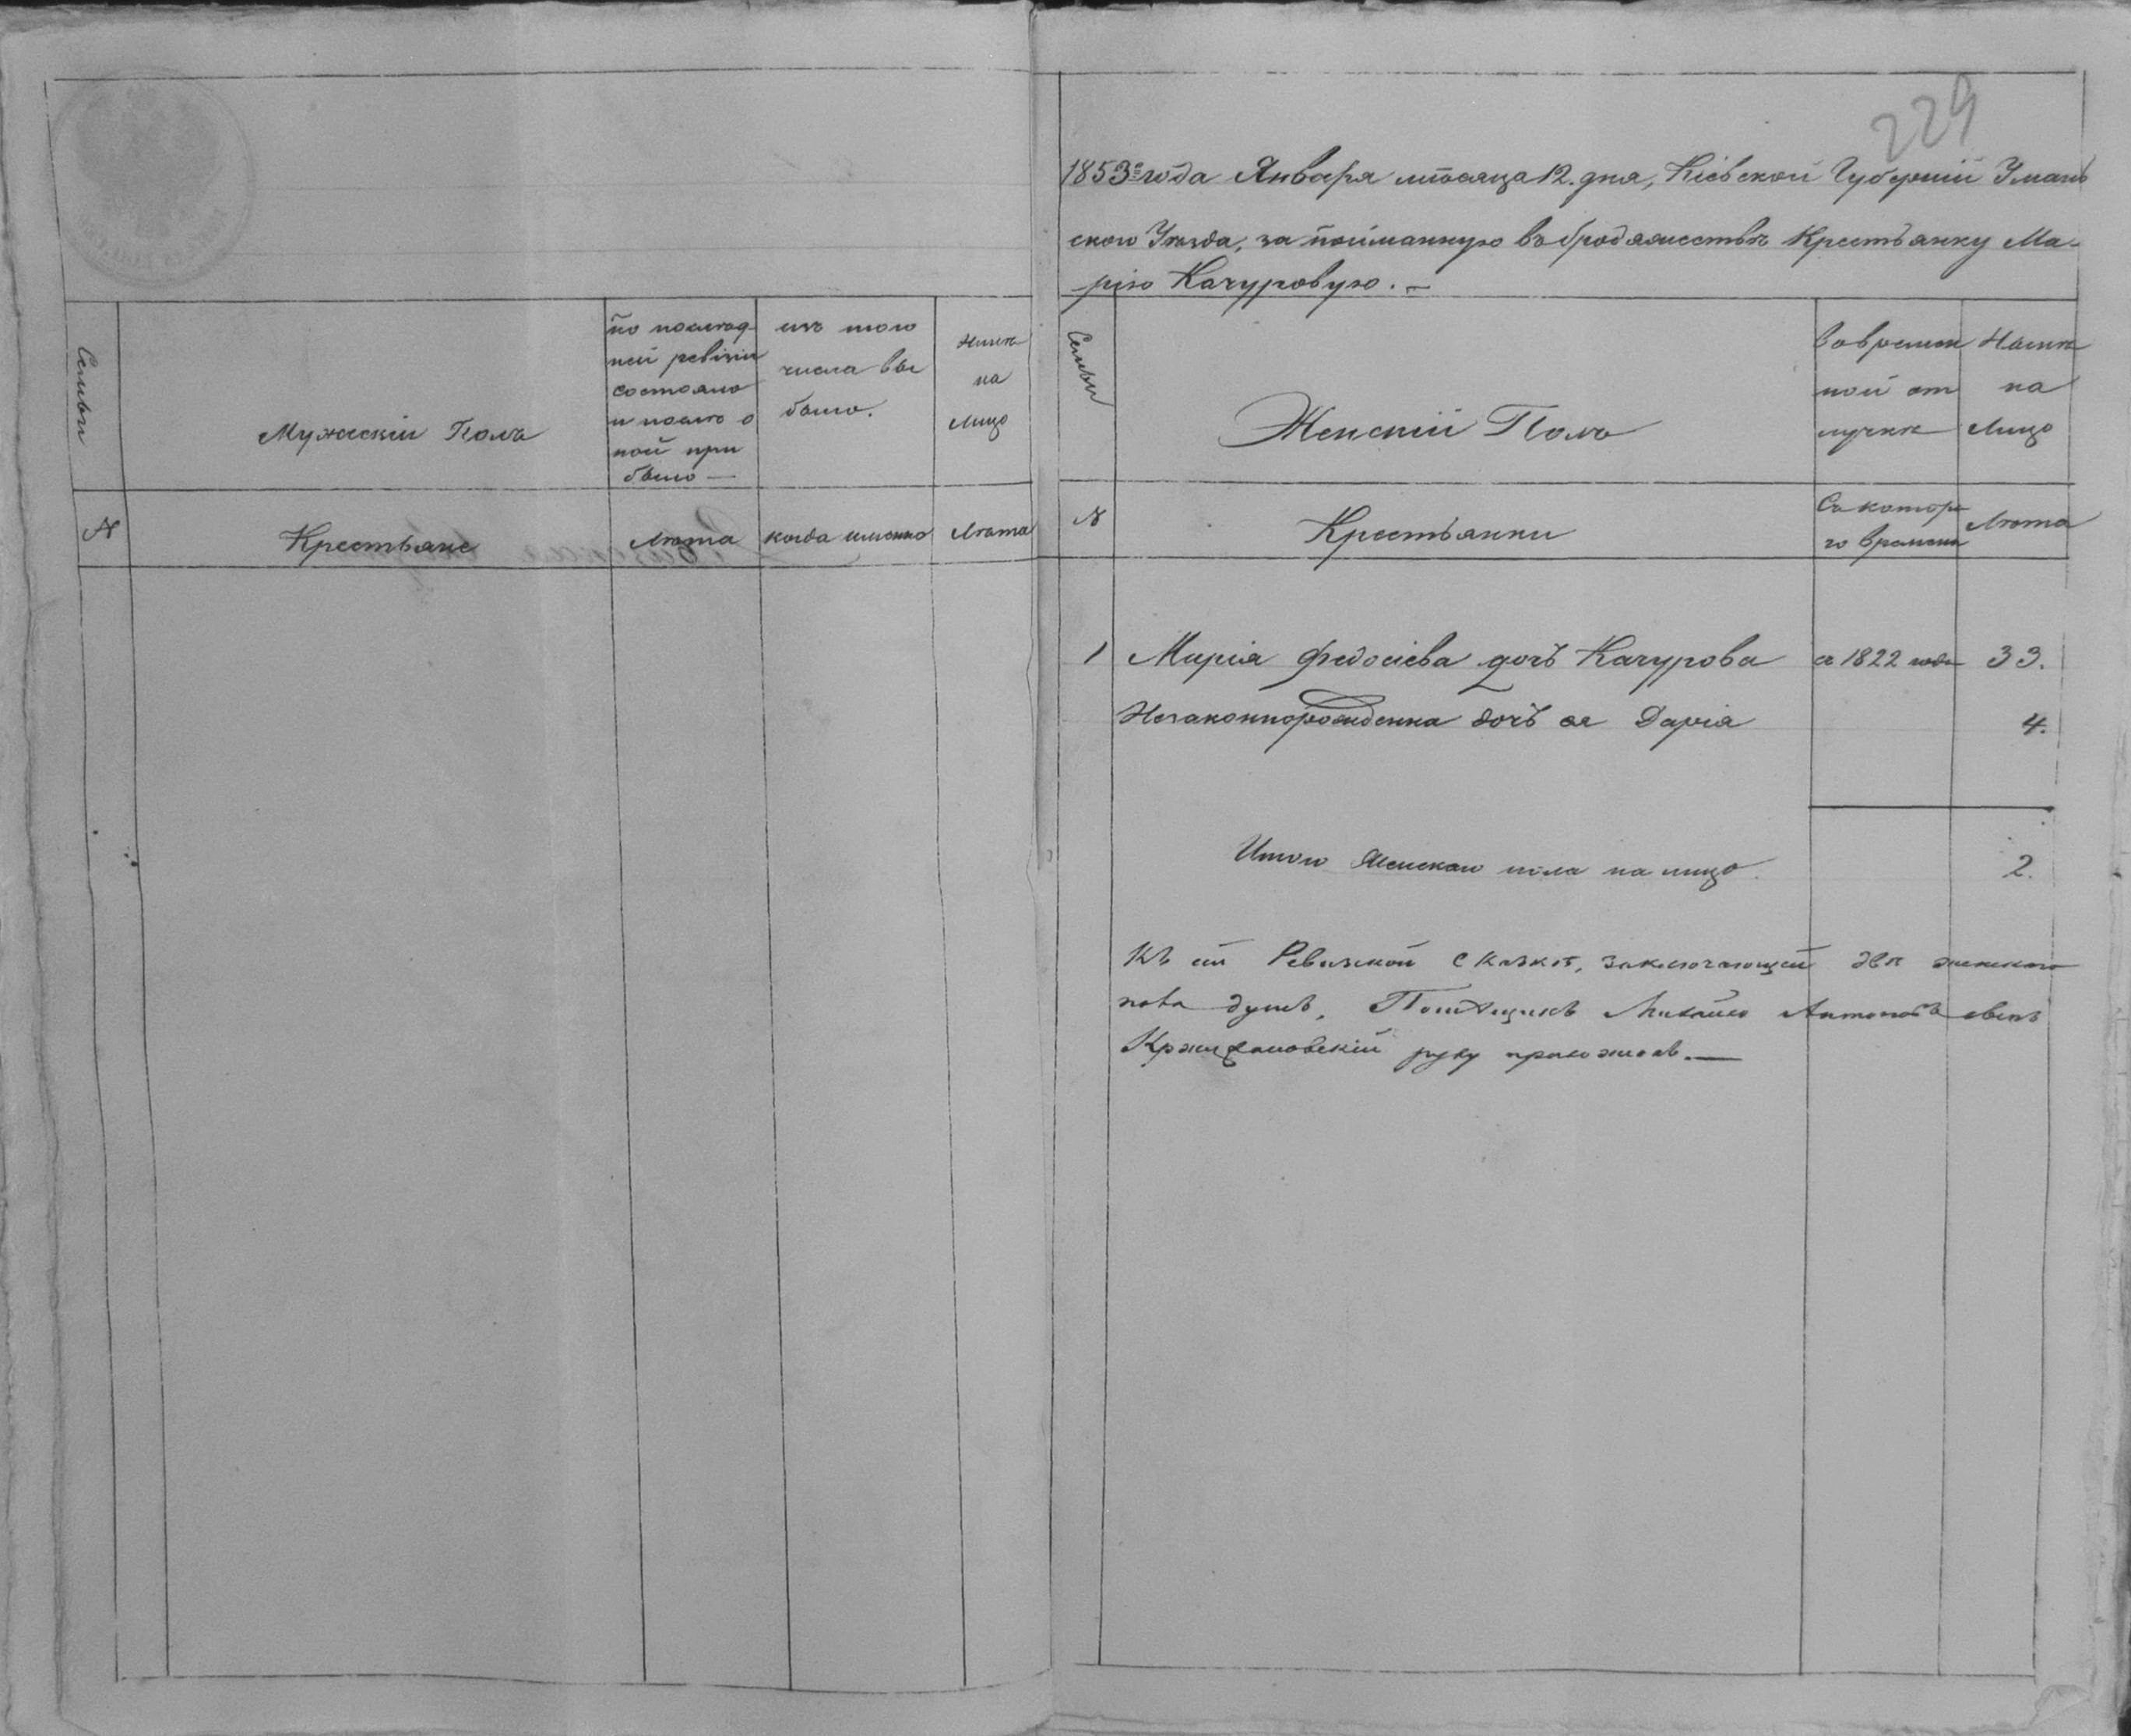 229
1853го года Января мѣсяца 12. дня, Кіевской Губерніи Уман
скаго Уѣзда, за пойманную въ бродяжествѣ Крестьянку Ма-
рію Качуровую. —
Семьи
Мужескій Полъ
по послѣд-
ней ревизіи
состояло
и послѣ о
ной при
было —
изъ того
числа вы
было.
Нынѣ
на
лицо
№
Крестьяне
Лѣта
когда именно
Лѣта
Семьи
Женскій Полъ
Во времен
ной от
лучкѣ
Нынѣ
на
Лицо
№
Крестьянки
Съ которо
го времени
Лѣта
1 Марія Федосіева дочь Качурова с 1822 года 33.
Незаконнорожденна дочь ея Дарія 4.
Итого Женскаго пола на лицо 2.
Къ сей Ревизской Сказкѣ, заключающей двѣ женскаго
пола душъ, Помѣщикъ Михайло Антоновъ сынъ
Кржижановскій руку приложилъ. —